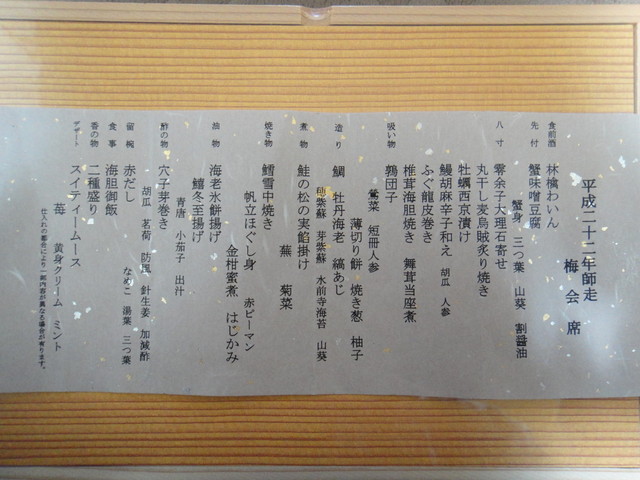 平成二十二年師走
梅会席
食前酒 林檎わいん
先付 蟹味噌豆腐
蟹身 三つ葉 山葵 割醤油
八寸 零余子大理石寄せ
丸干し麦烏賊炙り焼き
牡蠣西京漬け
鰻胡麻辛子和え 胡瓜 人参
ふぐ龍皮巻き
椎茸海胆焼き 舞茸当座煮
吸い物 鶉団子
鶯菜 短冊人参
薄切り餅 焼き葱 柚子
造り 鯛 牡丹海老 縞あじ
穂紫蘇 芽紫蘇 水前寺海苔 山葵
煮物 鮭の松の実餡掛け
蕪 菊菜
焼き物 鱈雪中焼き
帆立ほぐし身 赤ピーマン
金柑蜜煮 はじかみ
油物 海老氷餅揚げ
鱚冬至揚げ
青唐 小茄子 出汁
酢の物 穴子芽巻き
胡瓜 茗荷 防風 針生姜 加減酢
留椀 赤だし
なめこ 湯葉 三つ葉
食事 海胆御飯
香の物 二種盛り
デザート スイティームース
苺 黄身クリーム ミント
仕入れの都合により一部内容が異なる場合が有ります。